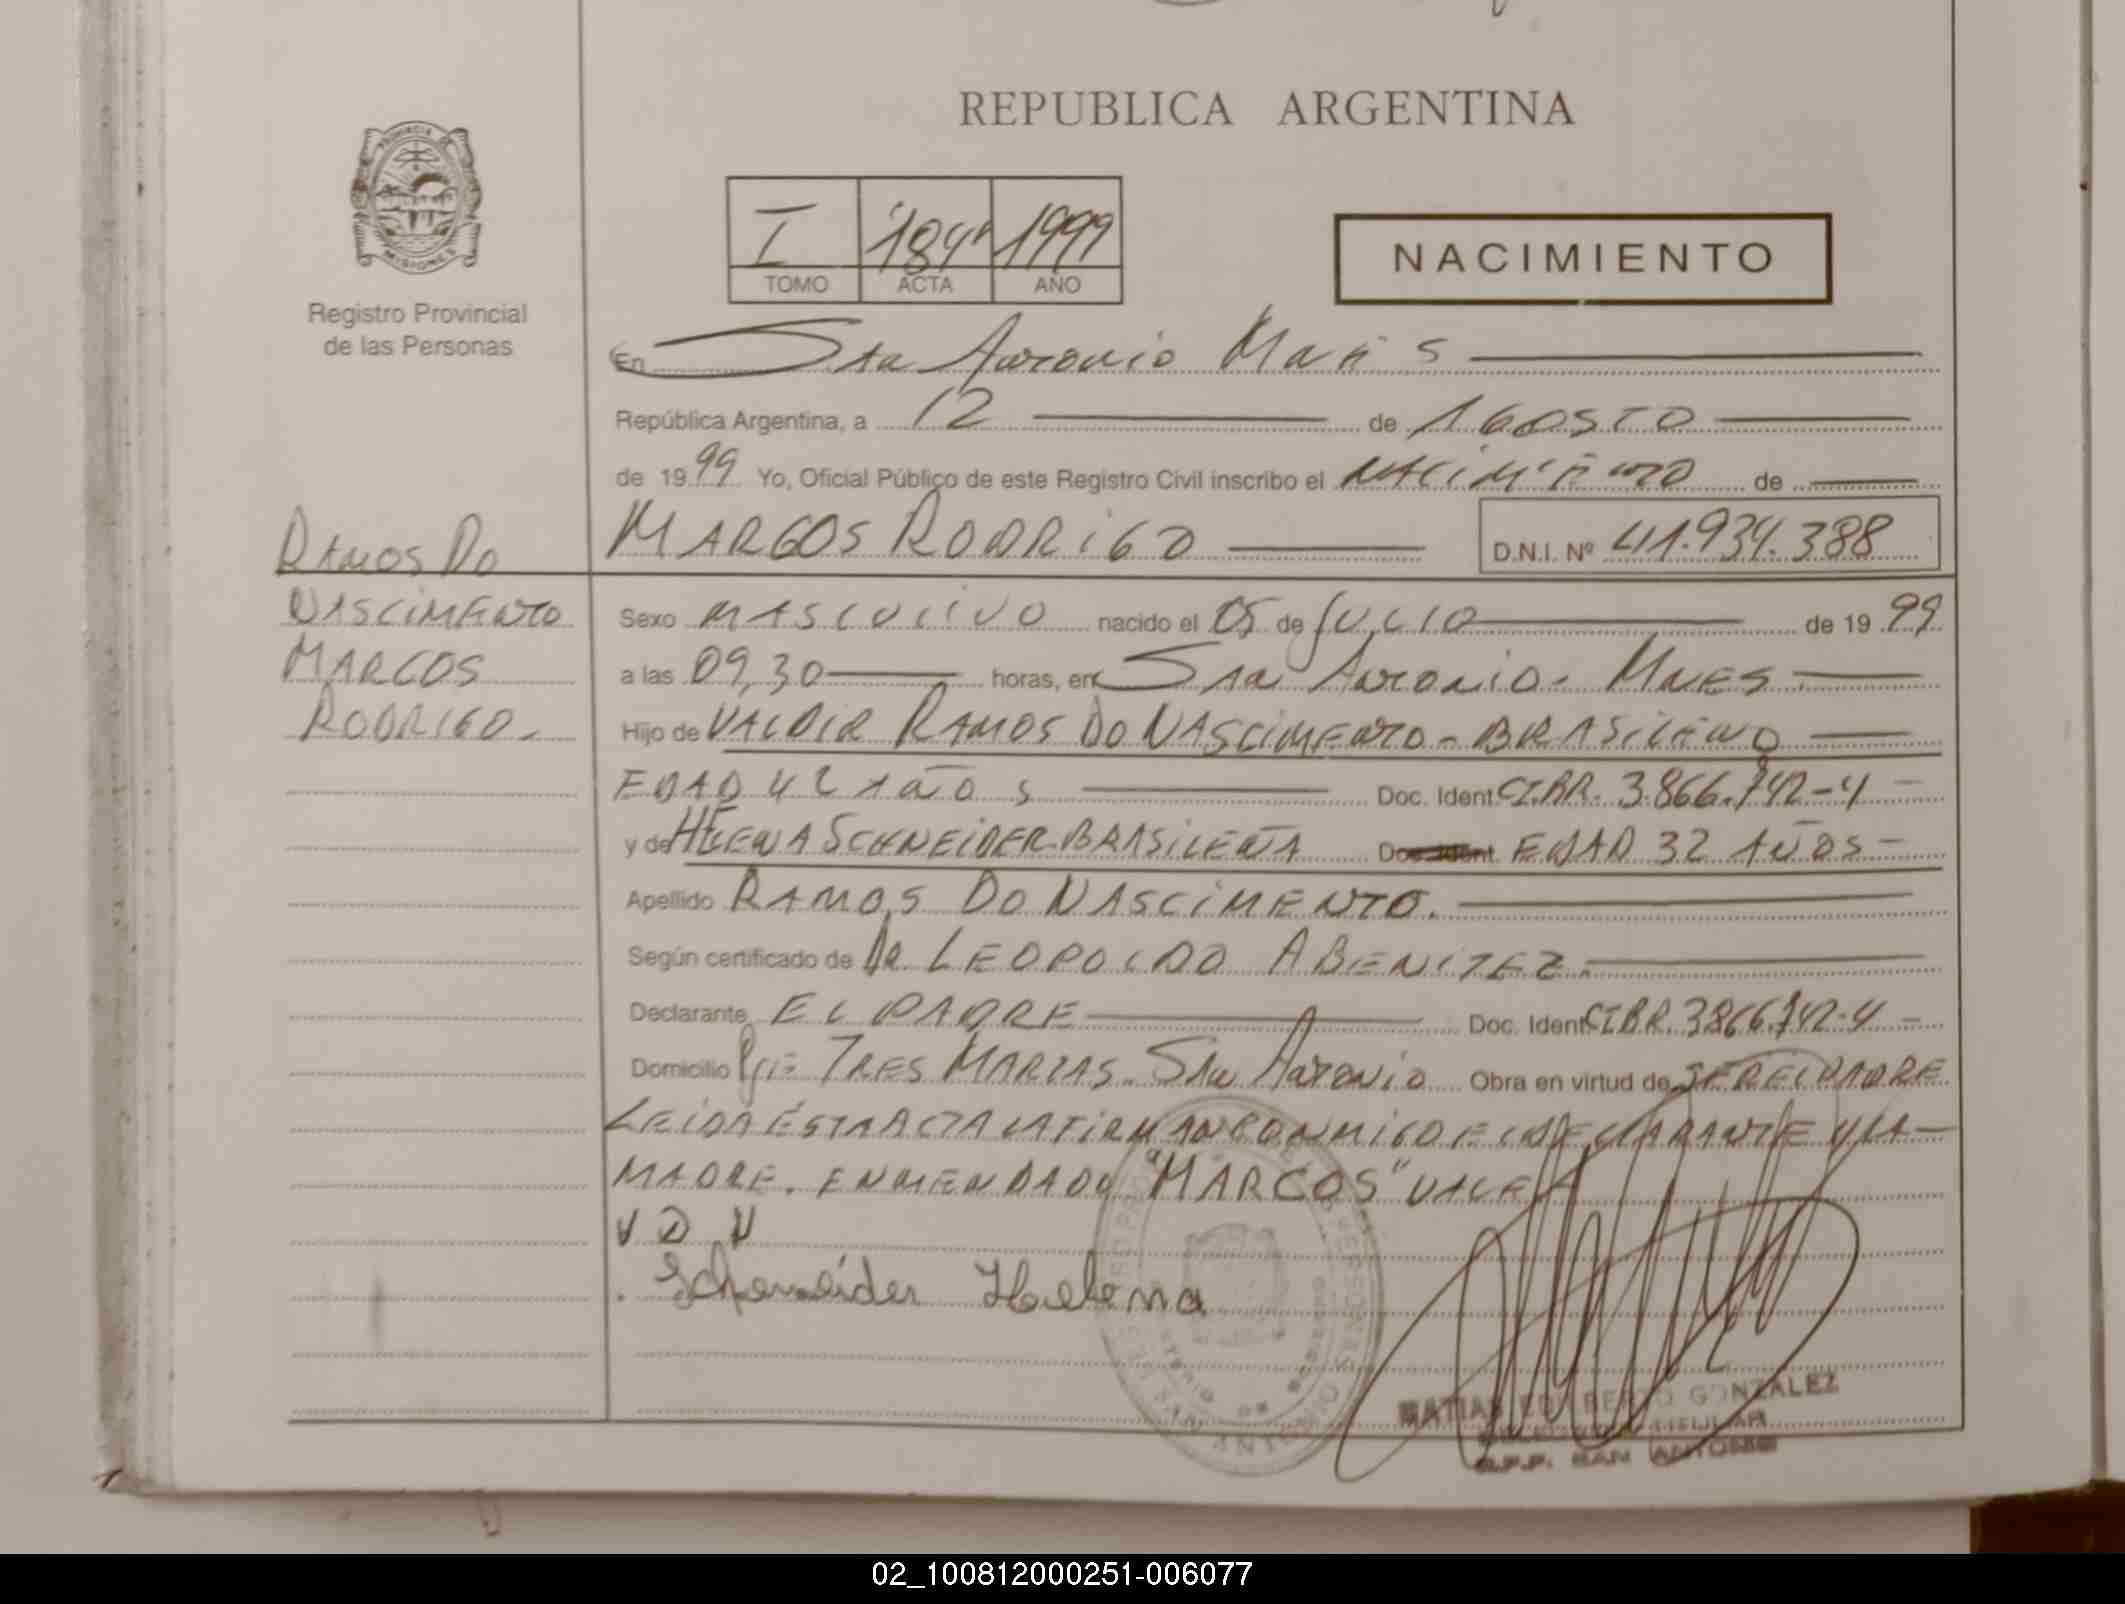 REPUBLICA ARGENTINA
PROVINCIA DE
MISIONES
Registro Provincial
de las Personas
I 184 1999
TOMO ACTA AÑO
NACIMIENTO
En San Antonio Mnes
República Argentina, a 12 de AGOSTO
de 1999 Yo, Oficial Público de este Registro Civil inscribo el NACIMIENTO de
MARCOS RODRIGO D.N.I. Nº 41.934.388
RAMOS DO
NASCIMENTO
MARCOS
RODRIGO.-
Sexo MASCULINO nacido el 05 de JULIO de 1999
a las 09,30 horas, en San Antonio - MNES
Hijo de VALDIR RAMOS DO NASCIMENTO - BRASILEÑO
EDAD 42 AÑOS Doc. Ident. CIBR. 3.866.742-4
y de HELENA SCHNEIDER-BRASILEÑA Doc. Ident. EDAD 32 AÑOS
Apellido RAMOS DO NASCIMENTO.
Según certificado de DR. LEOPOLDO A BENITEZ.
Declarante EL PADRE Doc. Ident. CIBR. 3866.742-4
Domicilio TRES MARIAS - San Antonio Obra en virtud de SER EL PADRE
LEIDA ESTA ACTA LA FIRMAN CONMIGO EL DECLARANTE Y LA
MADRE. ENMENDADO "MARCOS" VALE
V D N
Scheneider Helena
MATIAS EDILBERTO GONZALEZ
R.P.P. SAN ANTONIO
02_100812000251-006077